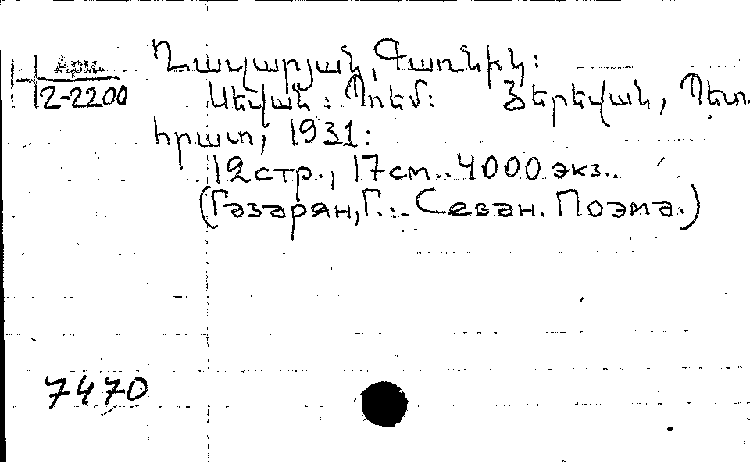 Арм.
2-2200
Ղազարյան, Գառնիկ:
Սեվան: Պոեմ: Յերեվան, Պետ.
հրատ, 1931:
12 стр., 17 см.. 4000 экз..
(Газарян, Г.:- Севан. Поэма.)
7470